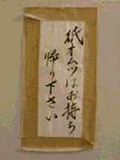 紙オムツはお持ち
帰り下さい